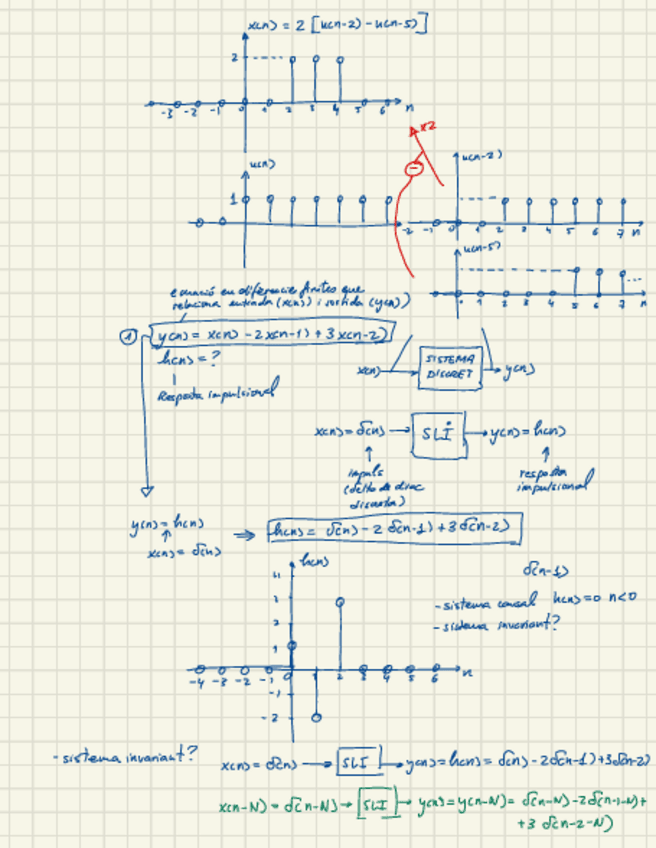 x(n) = 2 [u(n-2) - u(n-5)]
2
-3 -2 -1 0 1 2 3 4 5 6 n
x2
u(n)
1
-
u(n-2)
-2 -1 0 1 2 3 4 5 6 7 n
u(n-5)
2 3 4 5 6 7 n
equació en diferències finites que
relaciona entrada (x(n)) i sortida (y(n))
1 y(n) = x(n) - 2x(n-1) + 3x(n-2)
h(n) = ?
Resposta impulsional
x(n) SISTEMA DISCRET y(n)
x(n) = δ(n) → SLI → y(n) = h(n)
impuls
(delta de dirac
discreta)
resposta
impulsional
y(n) = h(n)
x(n) = δ(n)
⇒ h(n) = δ(n) - 2 δ(n-1) + 3 δ(n-2)
h(n)
4
3
2
1
-4 -3 -2 -1 0 1 2 3 4 5 6 n
-1
-2
δ(n-1)
- sistema causal h(n) = 0 n<0
- sistema invariant?
- sistema invariant?
x(n) = δ(n) → SLI → y(n) = h(n) = δ(n) - 2δ(n-1) + 3δ(n-2)
x(n-N) = δ(n-N) → SLI → y(n) = y(n-N) = δ(n-N) - 2δ(n-1-N) +
+3 δ(n-2-N)